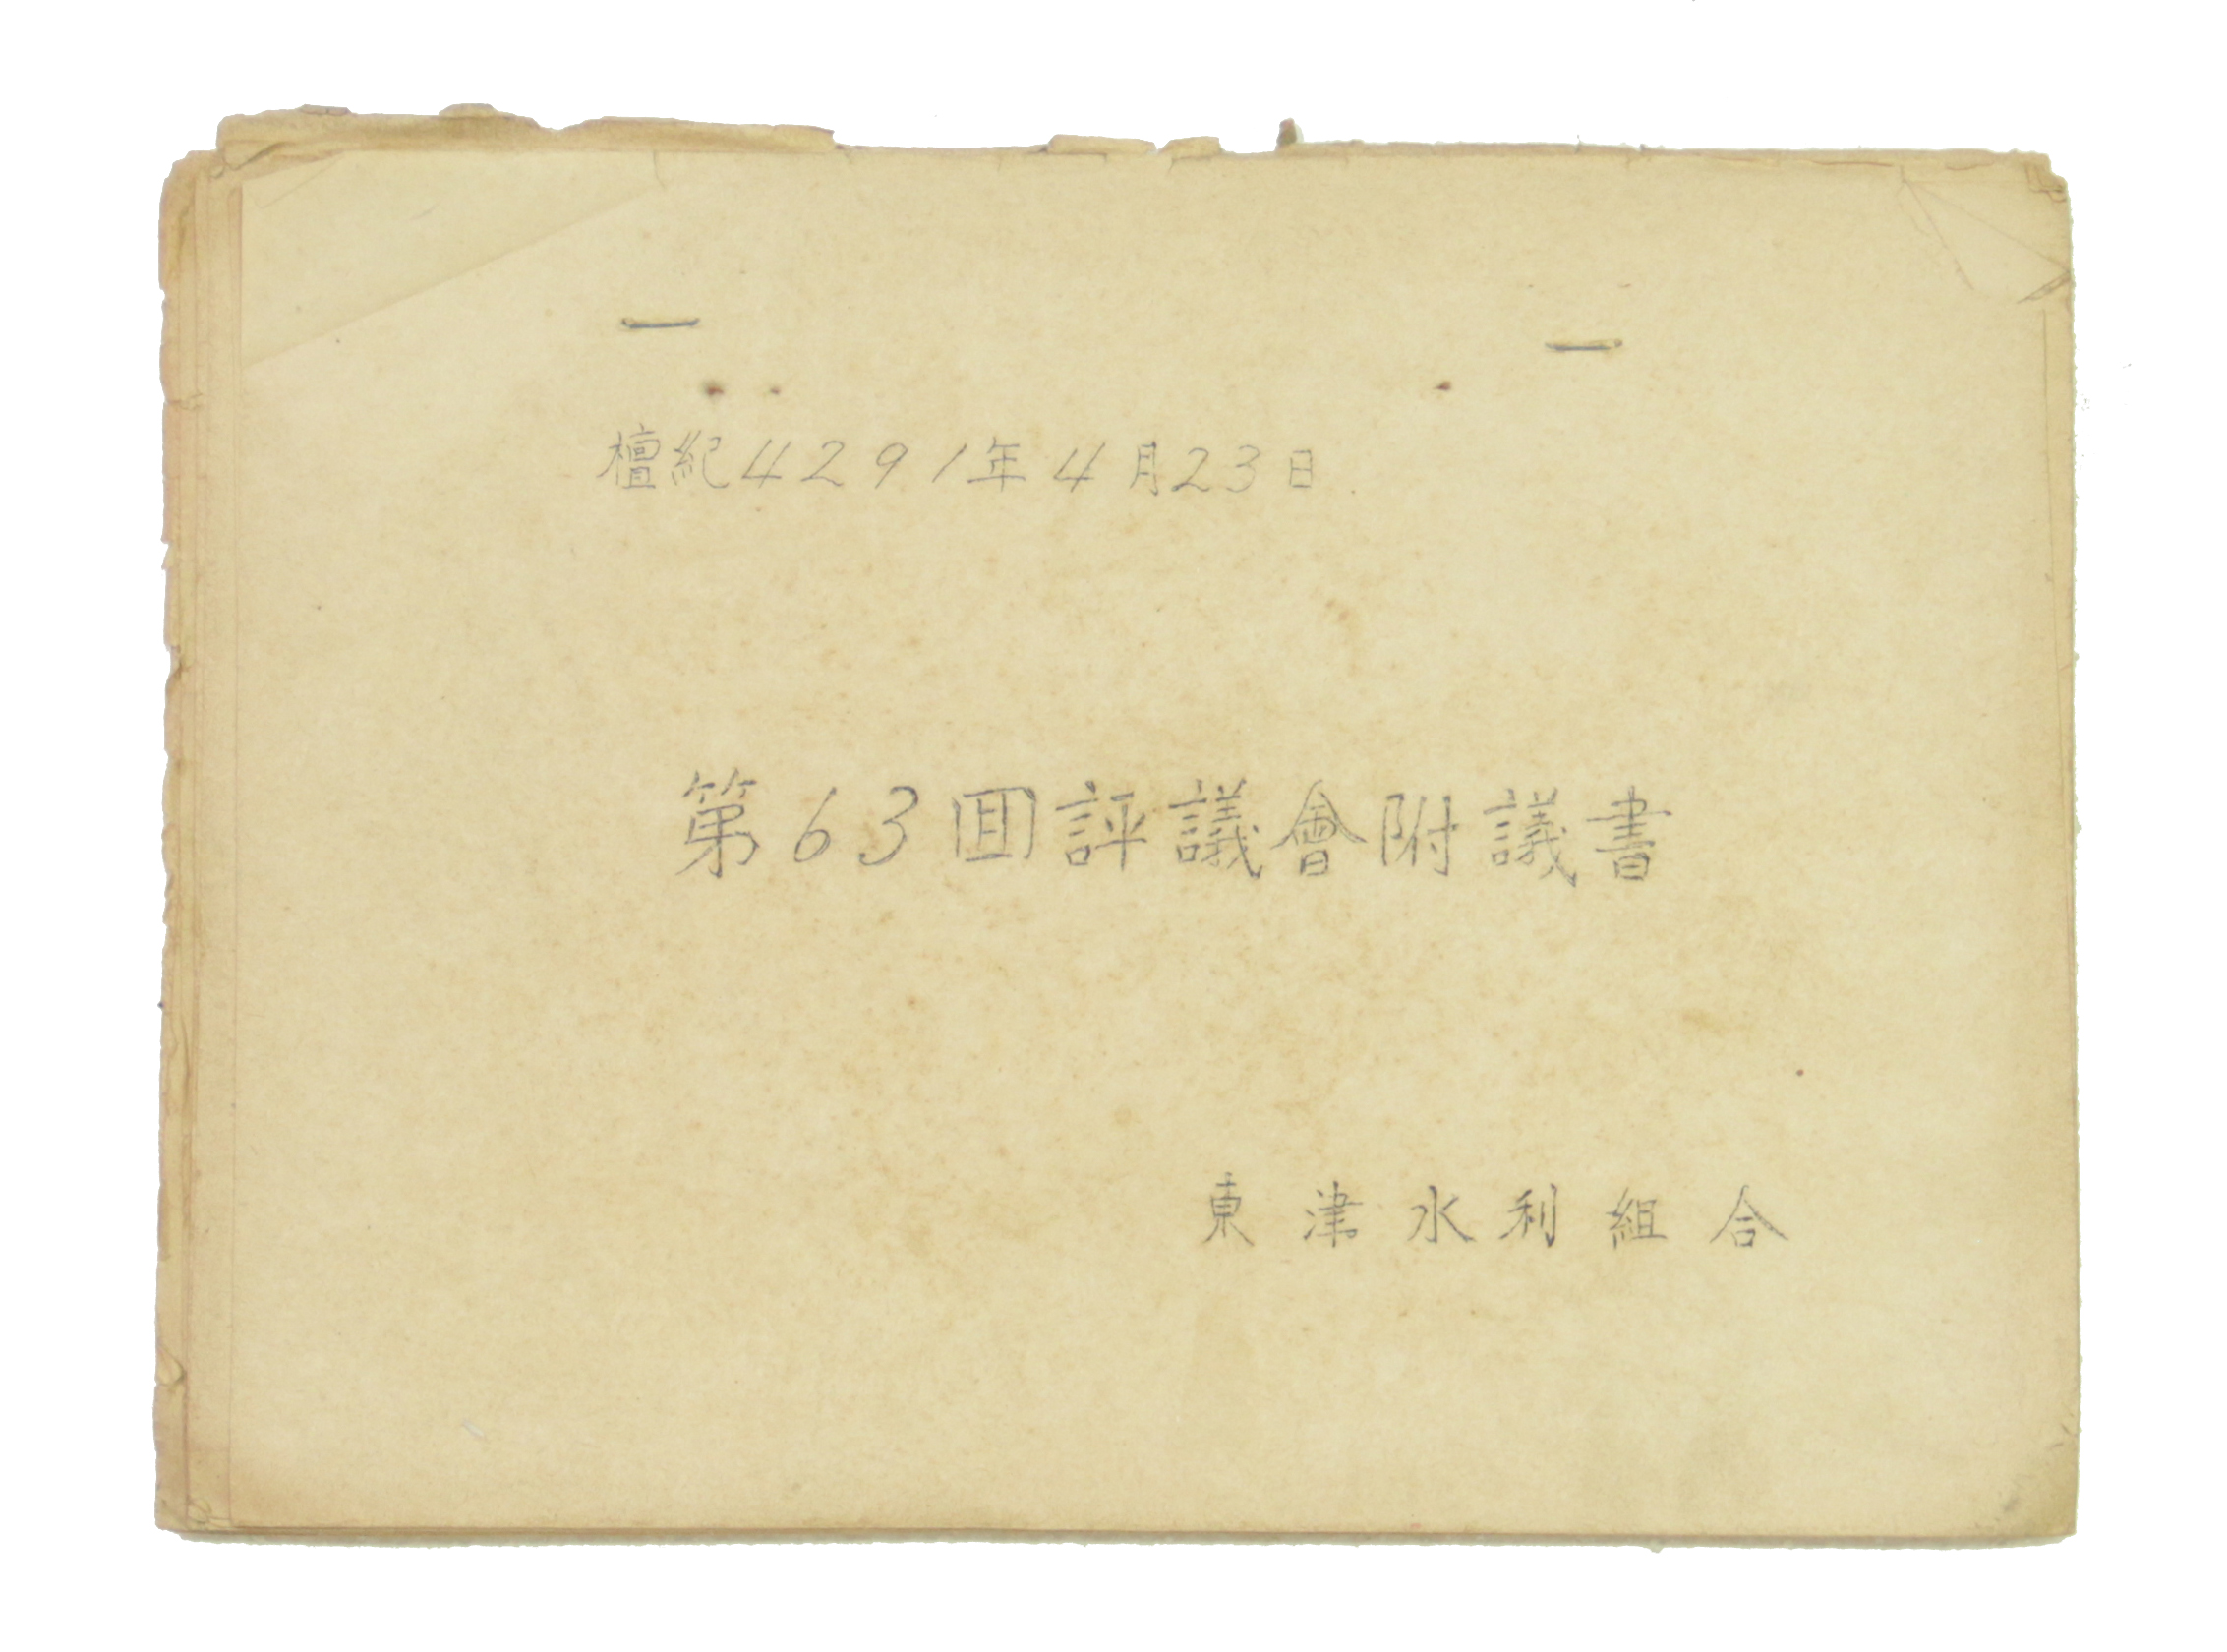 檀紀4291年4月23日
第63囬評議會附議書
東津水利組合